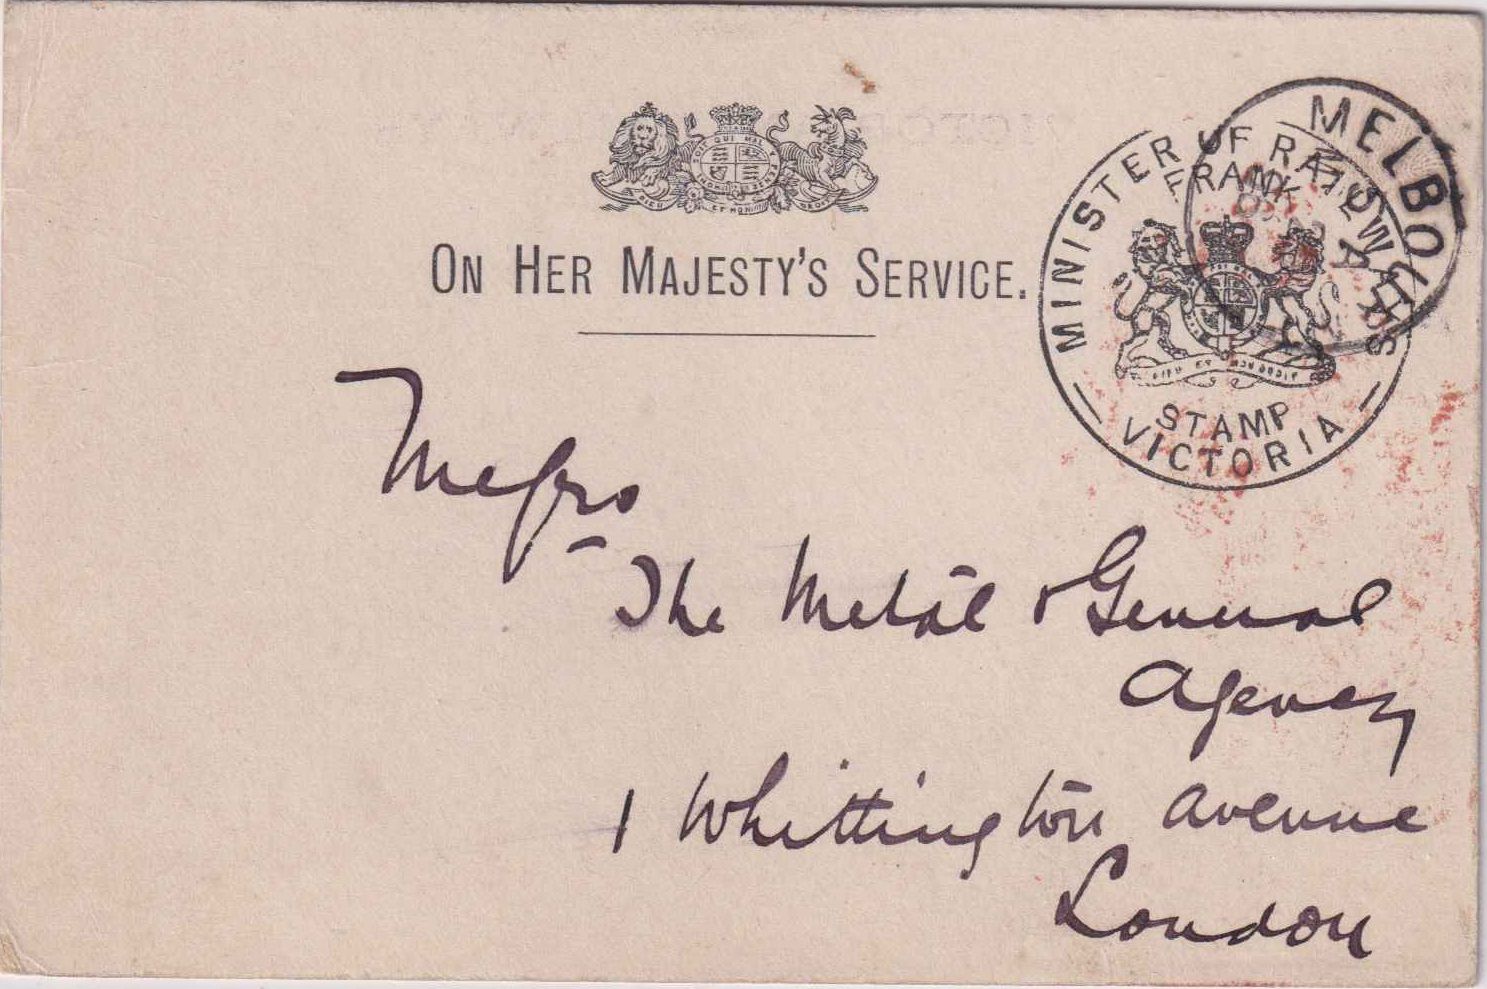 ON HER MAJESTY'S SERVICE.
MINISTER OF RAILWAYS
FRANK
STAMP
VICTORIA
MELBOU
A
Messrs
The Metal & General
Agency
1 Whittington Avenue
London